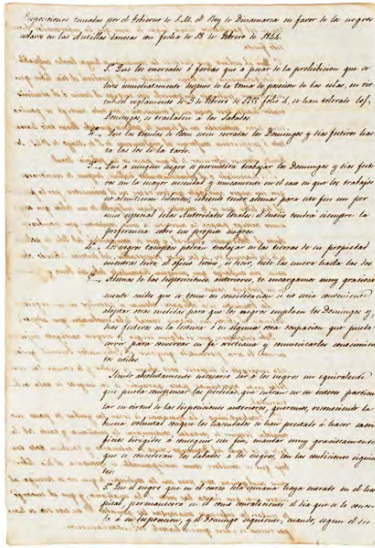 Disposiciones tomadas por el Gobierno de S.M. el Rey de Dinamarca en favor de los negros
esclavos en las Antillas danesas con fecha de 18 de Febrero de 1844.
1º Que los mercados ó ferias que á pesar de la prohibicion que se
hizo inmediatamente despues de la toma de posesion de las islas, en vir-
tud del reglamento de 3 de Febrero de folio 4, se han tolerado los
Domingos, se trasladen á los Sabados.
2º Que las tiendas se tienen cerradas los Domingos y dias festivos has-
ta las de la tarde.
3º Que á ningun negro se permitirá trabajar los Domingos y dias festi-
vos sin la mayor necesidad y unicamente en el caso en que los trabajos
no admitieran dilacion, debiendo tener ademas para esto un per-
miso especial de las Autoridades locales: el dueño tendrá siempre la
preferencia sobre sus propios negros.
4º negros tampoco podrán trabajar en las tierras de su propiedad
mientras dure el oficio divino, es decir, desde las nueve hasta las dos.
5º Ademas de las disposiciones anteriores, os encargamos muy graciosa-
mente que se tome en consideracion si no seria conveniente
adoptar otras medidas para que los negros empleen los Domingos y
dias festivos en la lectura ó en alguna otra ocupacion que pueda
servir para
utiles.
Siendo absolutamente necesario dar á los negros un equivalente
que pueda compensar las perdidas, que sufran en su interes particu-
lar en virtud de las disposiciones anteriores, queremos, reconociendo la
buena voluntad con que los hacendados se han prestado á hacer sacri-
ficios dirigidos á conseguir este fin, mandar muy graciosamente
que se concedan los Sabados á los negros con las condiciones siguien-
tes:
1º Que el negro que en el curso de la semana haya estado en el hos-
pital, permanecerá en él como convaleciente el dia que se le conce-
de á su disposicion, y el Domingo siguiente, cuando, segun el